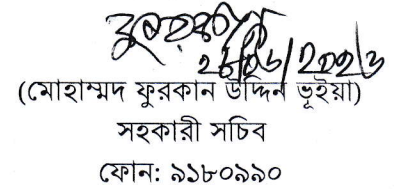 (মোহাম্মদ ফুরকান উদ্দিন ভূইয়া)
সহকারী সচিব
ফোন: ৯১৮০৯৯০